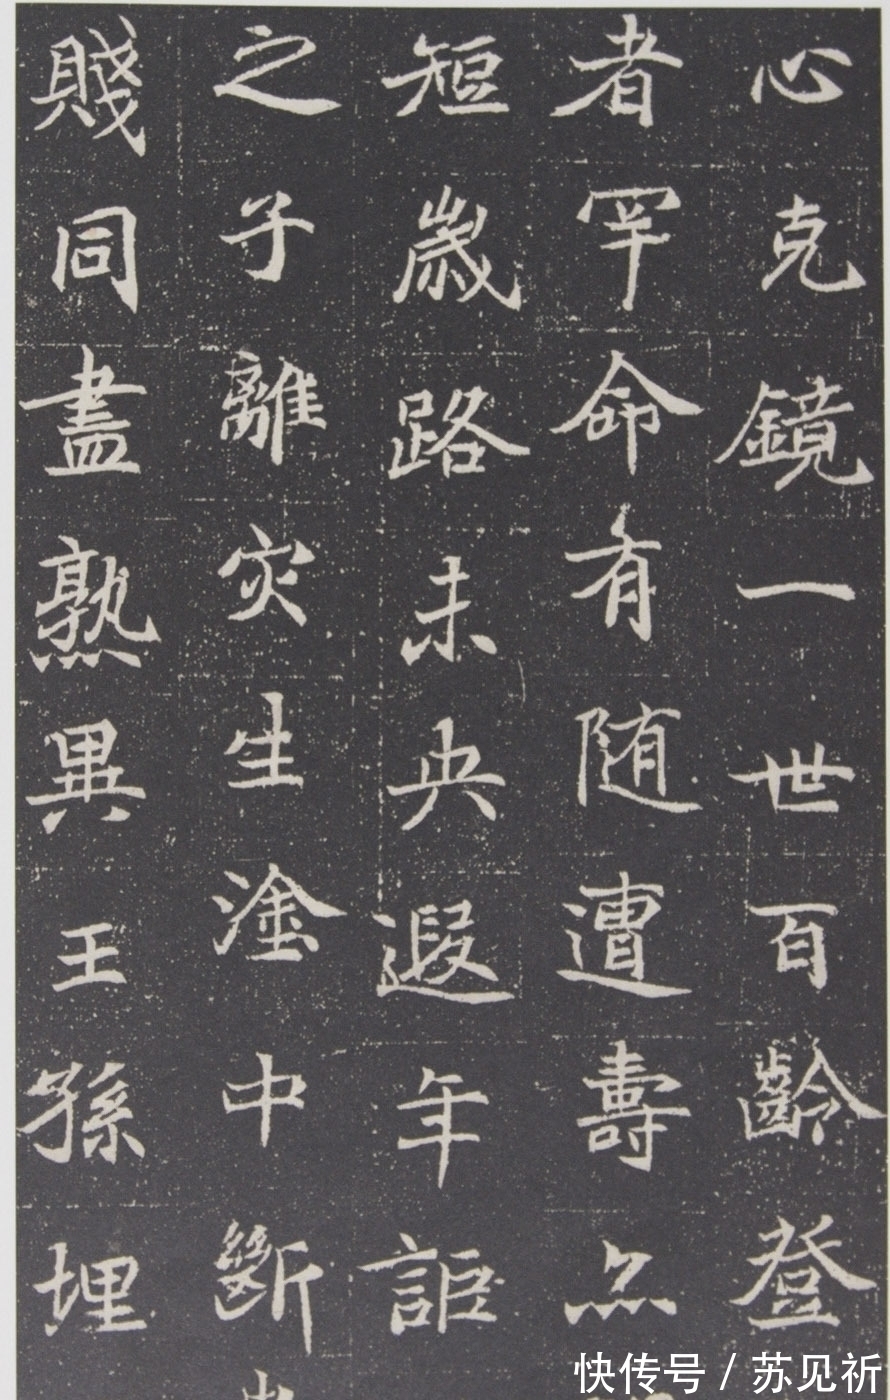 心克鏡一世百齡登
者罕命有随遭壽亦
短歲路未央遐年詎
之子離灾生塗中斷
賤同盡熟異王孫埋
快传号 / 苏见祈